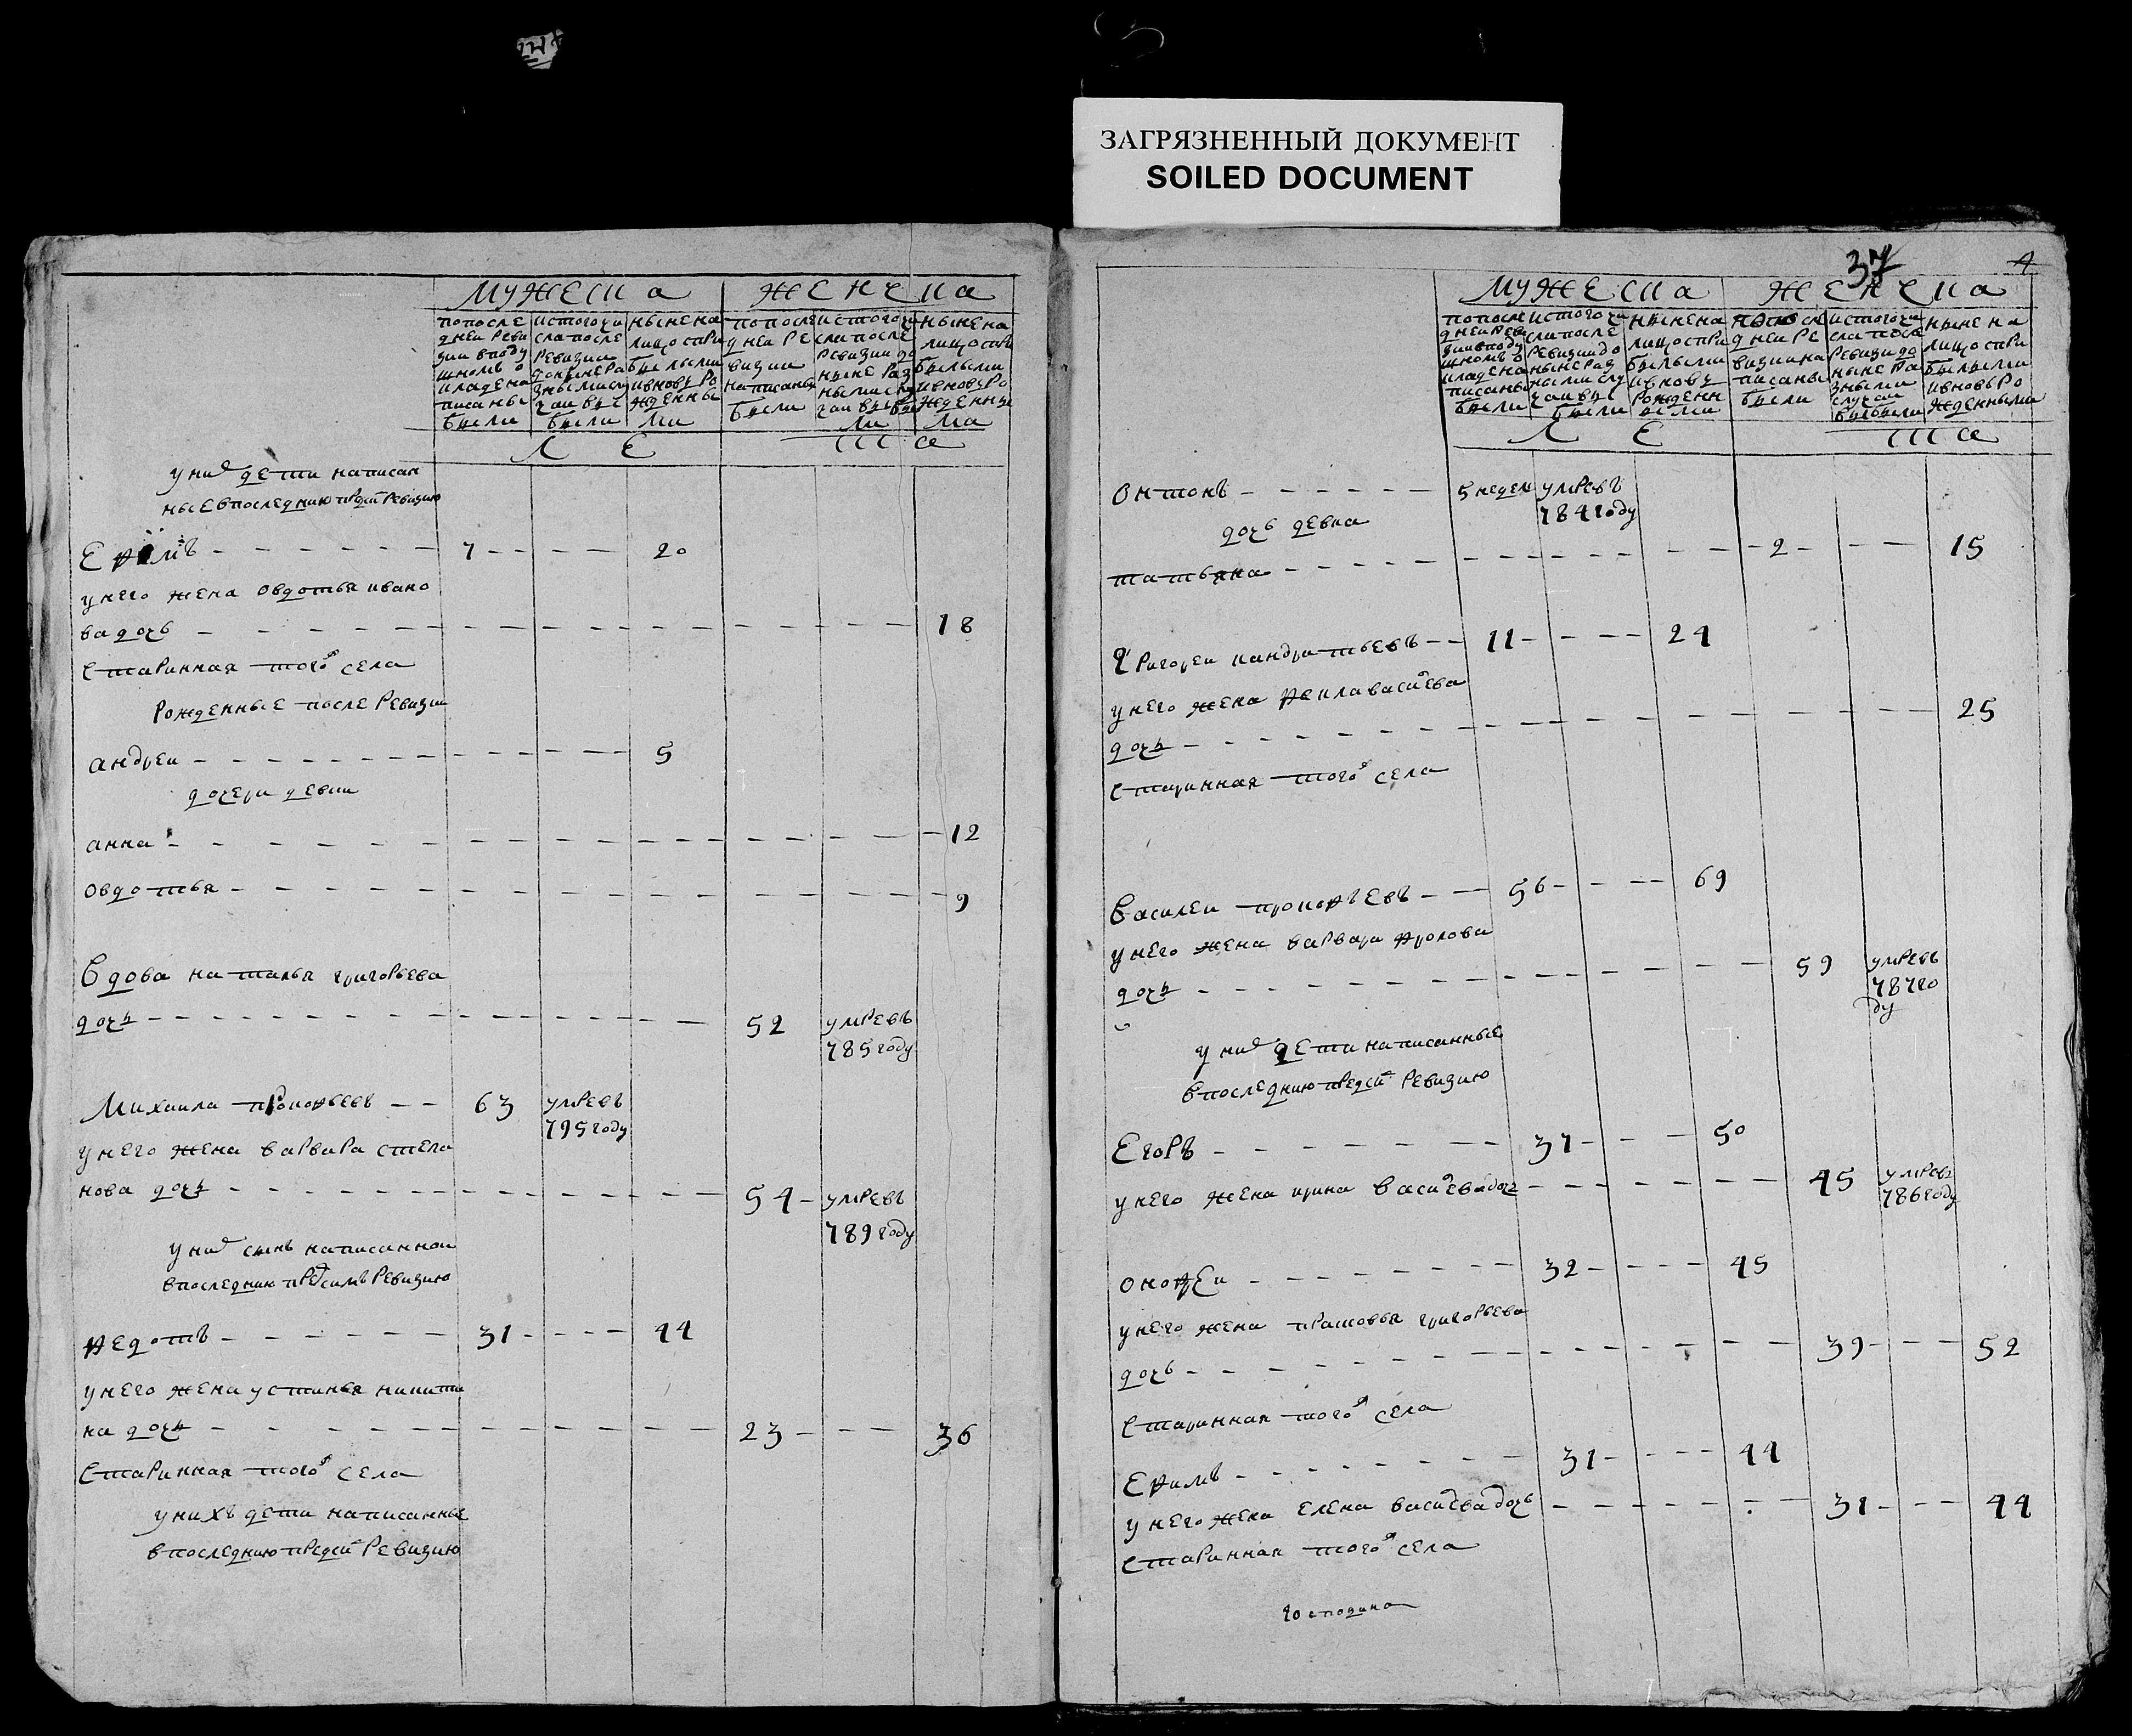 ЗАГРЯЗНЕННЫЙ ДОКУМЕНТ
SOILED DOCUMENT
мужеска
женска
попосле
дней реви
зии впо ду
шномъ о
кладе на
писаны
были
ис того чи
сла после
ревизии
до ныне ра
зными слу
чаи вы
были
ныне на
лицо с при
былыми
и вновь ро
жденны
ми
попосле
дней ре
визии
написаны
были
ис того чи
сла после
ревизии до
ныне раз
ными слу
чаи выбы
ли
ныне на
лицо с при
былыми
и вновь ро
жденны
ми
ле
та
у них дети написан
ные в последнию пред сим ревизию
Ефимъ 7 20
у него жена овдотья ивано
ва дочь 18
старинная того ж села
рожденные после ревизии
андреи 5
дочери девки
анна 12
овдотья 9
Вдова наталья григорьева
дочь 52 умре въ
785 году
Михаила прокофьевъ 63 умре въ
795 году
у него жена варвара степа
нова дочь 54 умре въ
789 году
у них сынъ написаннои
в последнию пред симъ ревизию
федотъ 31 44
у него жена устинья никити
на дочь 23 36
старинная того ж села
у нихъ дети написанные
в последнию пред сим ревизию
37
4
мужеска
женска
попосле
дней реви
зии в по ду
шномъ о
кладе на
писаны
были
ис того чи
сли после
ревизии до
ныне раз
ными слу
чаи вы
были
ныне на
лицо с при
былыми
и вновь
рожденн
ыми
попосле
дней ре
визии на
писаны
были
ис того чи
сла после
ревизи до
ныне ра
зными
случаи
выбыли
ныне на
лицо с при
былыми
и вновь ро
жденными
ле
та
Онтонъ 5 недель умре въ
784 году
дочь девка
татьяна 2 15
Григореи кандратьевъ 11 24
у него жена фекла васильева
дочь 25
старинная того ж села
Василеи прокофьевъ 56 69
у него жена варвара фролова
дочь 59 умре въ
787 го
ду
у них дети написанные
в последнию пред сим ревизию
Егоръ 37 50
у него жена ирина васильева дочь 45 умре въ
786 году
онофреи 32 45
у него жена прасковья григорьева
дочь 39 52
старинная того ж села
Ефимъ 31 44
у него жена елена васильева дочь 31 44
старинная того ж села
господина